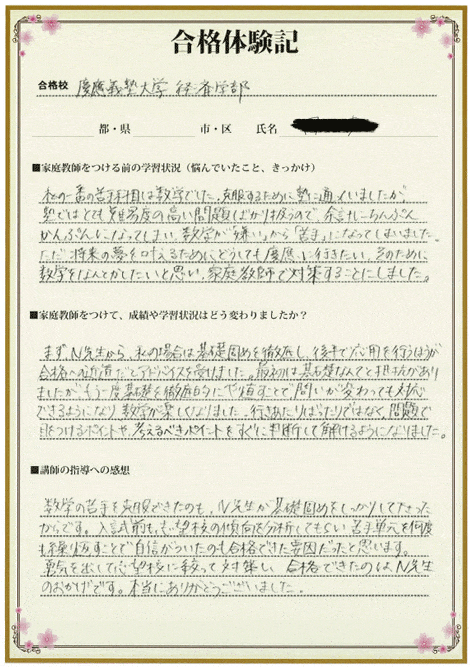 合格体験記
合格校 慶應義塾大学 経済学部
都・県 市・区 氏名
■家庭教師をつける前の学習状況（悩んでいたこと、きっかけ）
私の一番の苦手科目は数学でした。克服するために塾に通っていましたが
塾ではとても難易度の高い問題ばかり扱うので、余計にちんぷん
かんぷんになってしまい、数学が「嫌い」から「苦手」になってしまいました。
ただ、将来の夢を叶えるためにどうしても慶應に行きたい、そのために
数学をなんとかしたいと思い、家庭教師で対策することにしました。
■家庭教師をつけて、成績や学習状況はどう変わりましたか？
まずN先生から、私の場合は基礎固めを徹底し、後半で応用を行うほうが
合格への近道だとアドバイスを受けました。最初は基礎なんてと抵抗があり
ましたが、もう一度基礎を徹底的にやり直すことで問いが変わっても対応
できるようになり、数学が楽しくなりました。行きあたりばったりではなく、問題で
目をつけるポイントや、考えるべきポイントをすぐに判断して解けるようになりました。
■講師の指導への感想
数学の苦手を克服できたのも、N先生が基礎固めをしっかりして下さった
からです。入試前も、志望校の傾向を分析してもらい、苦手単元を何度
も繰り返すことで自信がついたのも合格できた要因だったと思います。
勇気を出して志望校に絞って対策し、合格できたのはN先生
のおかげです。本当にありがとうございました。